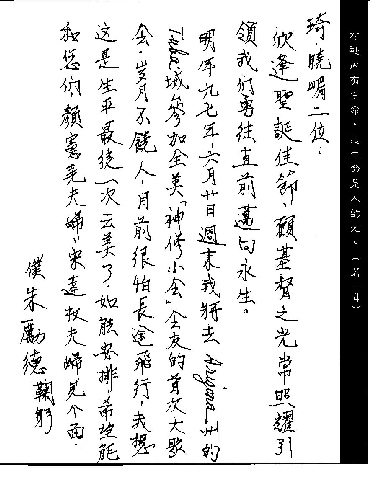 琦、曉嵋二位：
欣逢聖誕佳節，願基督之光常照耀引
領我們勇往直前邁向永生。
明年九七年、六月廿日週末我將去 州的
城參加全美「神修小會」會友的首次大聚
會，岁月不饒人，目前很怕長途飛行，我想
這是生平最後一次去美了，如能安排希望能
和您們顏憲堯夫婦、宋達权夫婦見个面。
僕朱勵德鞠躬